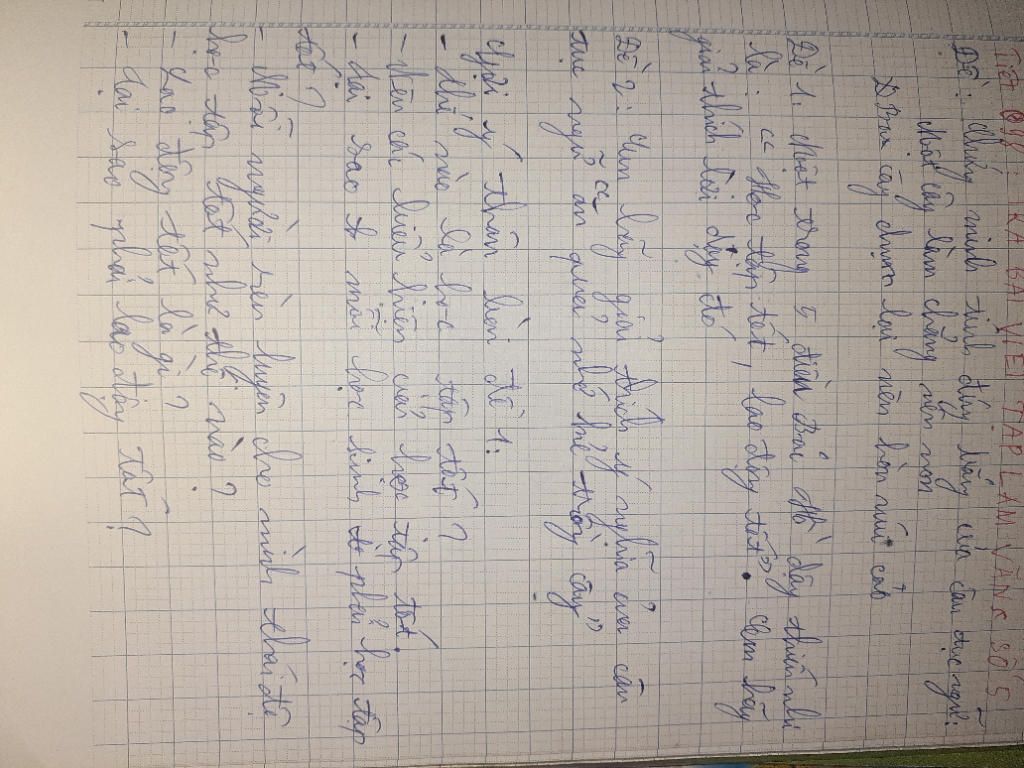 Tiết 098: TRẢ BÀI VIẾT TẬP LÀM VĂN SỐ 5
Đề: Chứng minh tính đúng đắng của câu tục ngữ:
Một cây làm chẳng nên non
Ba cây chụm lại nên hòn núi cao
Đề 1. Một trong 5 điều Bác Hồ dạy thiếu nhi
là: "Học tập tốt, lao động tốt". Em hãy
giải thích lời dạy đó
Đề 2: Em hãy giải thích ý nghĩa của câu
tục ngữ "ăn quả nhớ kẻ trồng cây"
Gợi ý thân bài đề 1:
- Thế nào là học tập tốt?
- Nêu các biểu hiện của học tập tốt.
- Tại sao mỗi học sinh phải học tập
tốt?
- Mỗi người rèn luyện cho mình thái độ
học tập tốt như thế nào?
- Lao động tốt là gì?
- Tại sao phải lao động tốt?